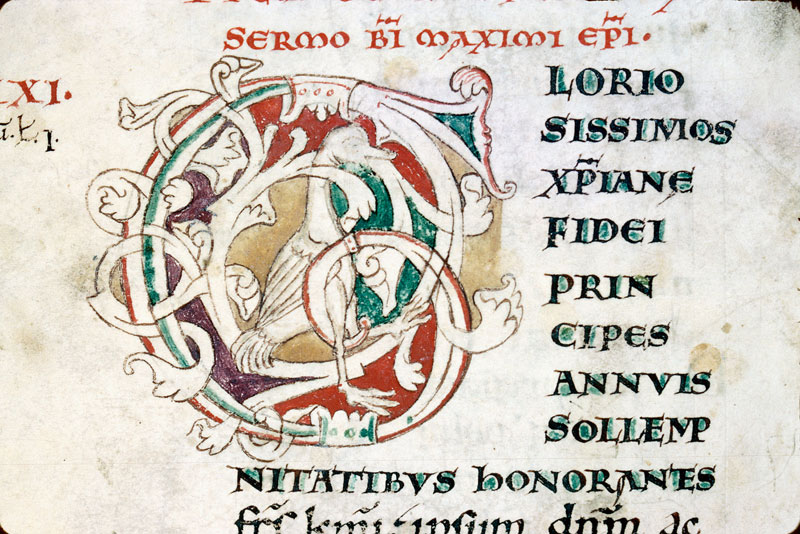 SERMO BI MAXIMI EPI.
XXI.
G
LORIO
SISSIMOS
XPIANE
FIDEI
PRIN
CIPES
ANNVIS
SOLLEMP
NITATIBVS hONORANTES
frs kmi, ipsum dnm ac